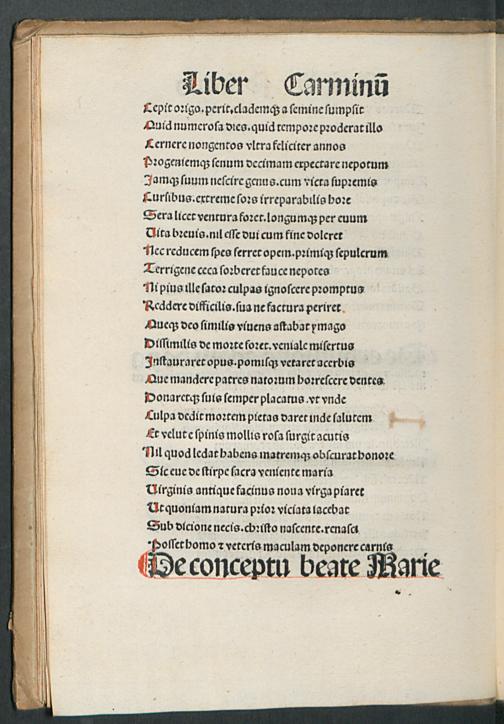 Liber Carminū
Cepit origo. perit. clademqꝫ a semine sumpsit
Quid numerosa dies. quid tempore proderat illo
Cernere nongentos vltra feliciter annos
Progeniemqꝫ senum decimam expectare nepotum
Jamqꝫ suum nescire genus. cum victa supremis
Cursibus. extreme sors irreparabilis hore
Sera licet ventura foret. longumqꝫ per euum
Uita breuis. nil esse diu cum fine doleret
Nec reducem spes ferret opem. primiqꝫ sepulcrum
Terrigene ceca sorberet fauce nepotes
Ni pius ille sator culpas ignoscere promptus
Reddere difficilis. sua ne factura periret
Queqꝫ deo similis viuens astabat ymago
Dissimilis de morte foret. veniale misertus
Instauraret opus. pomisqꝫ vetaret acerbis
Que mandere patres natorum horrescere dentes
Donaretqꝫ suis semper placatus. vt vnde
Culpa dedit mortem pietas daret inde salutem
Et velut e spinis mollis rosa surgit acutis
Nil quod ledat habens matremqꝫ obscurat honore
Sic eue de stirpe sacra veniente maria
Uirginis antique facinus noua virgo piaret
Ut quoniam natura prior viciata iacebat
Sub dicione necis. christo nascente. renasci
Posset homo ⁊ veteris maculam deponere carnis
De conceptu beate Marie